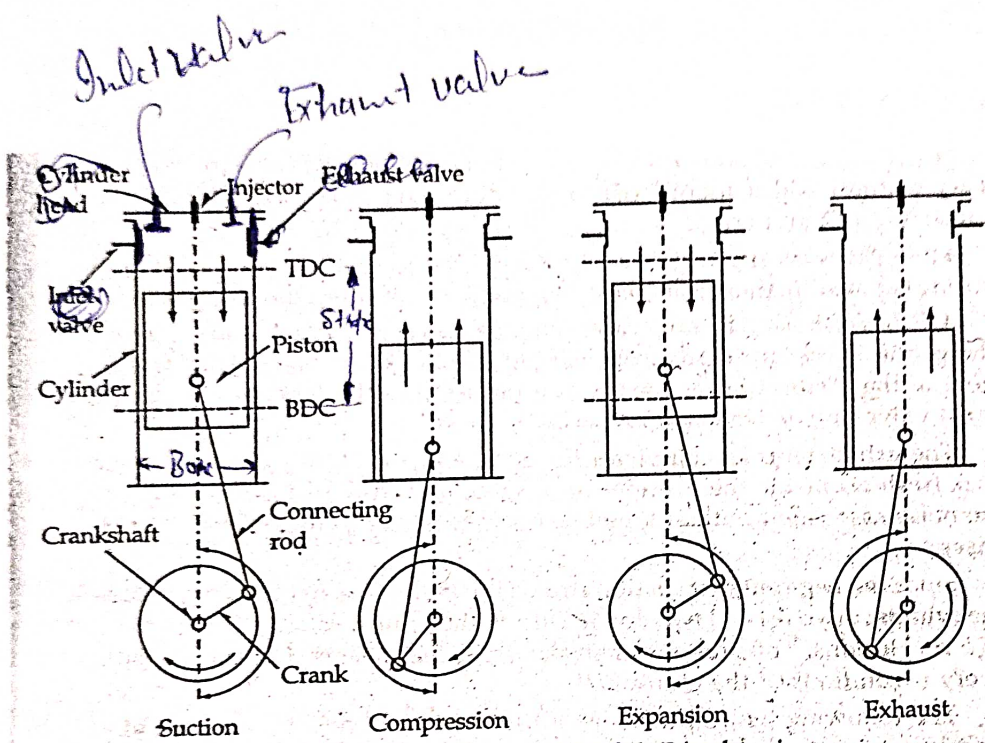 Inlet valve
Exhaust valve
Cylinder
head
Injector
Exhaust valve
TDC
Inlet
valve
Piston
Cylinder
BDC
Bore
Connecting
rod
Crankshaft
Crank
Suction
Compression
Expansion
Exhaust